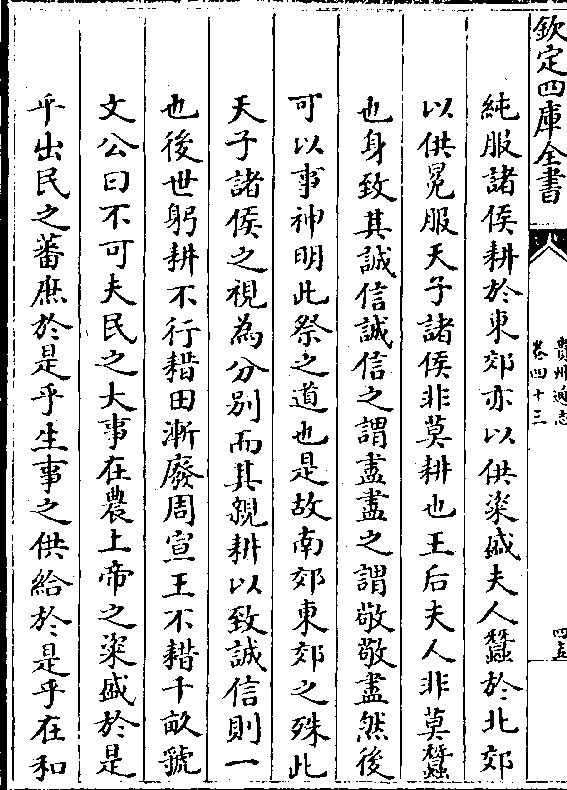 欽定四庫全書
貴州通志
卷四十三
四五
純服諸侯耕於東郊亦以供粢盛夫人蠶於北郊
以供冕服天子諸侯非莫耕也王后夫人非莫蠶
也身致其誠信誠信之謂盡盡之謂敬敬盡然後
可以事神明此祭之道也是故南郊東郊之殊此
天子諸侯之視為分別而其親耕以致誠信則一
也後世躬耕不行耤田漸廢周宣王不耤千畝虢
文公曰不可夫民之大事在農上帝之粢盛於是
乎出民之蕃庶於是乎生事之供給於是乎在和